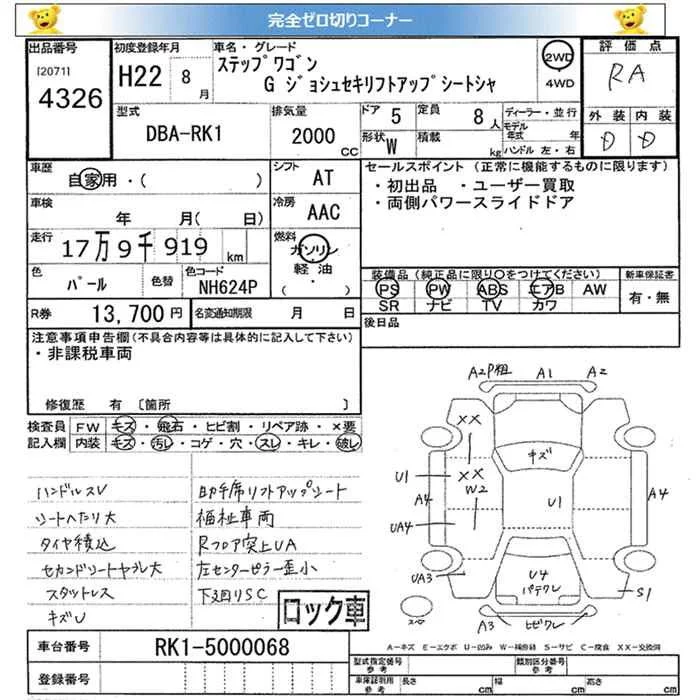 完全ゼロ切りコーナー
出品番号 初度登録年月 車名・グレード 評価点
[2071] ステップワゴン 2WD
4326 H22 8月 G ジョシュセキリフトアップシートシャ 4WD RA
型式 排気量 ドア 5 定員 8人 ディーラー・並行 外装 内装
DBA-RK1 2000CC 形状 W 積載 kg モデル年式 年 D D
ハンドル 左・右
車歴 自家用・( ) シフト AT セールスポイント (正常に機能するものに限ります)
・初出品 ・ユーザー買取
車検 年 月( 日) 冷房 AAC ・両側パワースライドドア
走行 17万9千919km 燃料 ガソリン
軽油
( ・ )
色 パール 色替 色コード NH624P 装備品 (純正品に限り○をつけてください) 新車保証書
PS PW ABS エアB AW 有・無
SR ナビ TV カワ
R券 13,700円 名変通知期限 月 日 後日品
注意事項申告欄(不具合内容等は具体的に記入して下さい)
・非課税車両
修復歴 有 〔箇所 〕
検査員 FW キズ・飛石・ヒビ割・リペア跡・×要
記入欄 内装 キズ・汚レ・コゲ・穴・スレ・キレ・破レ
ハンドルスレ 助手席リフトアップシート
シートヘたり大 福祉車両
タイヤ積込 Rフロア突上UA
セカンドシートヤブレ大 左センターピラー歪小
スタットレス 下廻りSC
キズU
ロック車
A2P粗 A1 A2
XX
キズ
XX
U1 W2 U1
A4 A4
UA4
UA3 U4 S1
パテワレ
スペロ A3 ヒビワレ
A-キズ E-エクボ U-凹み W-補修跡 S-サビ C-腐食 XX-交換済
車台番号 RK1-5000068
登録番号
型式指定番号 参考 類別区分番号 参考
車庫証明用 参考 長さ cm 幅 cm 高さ cm